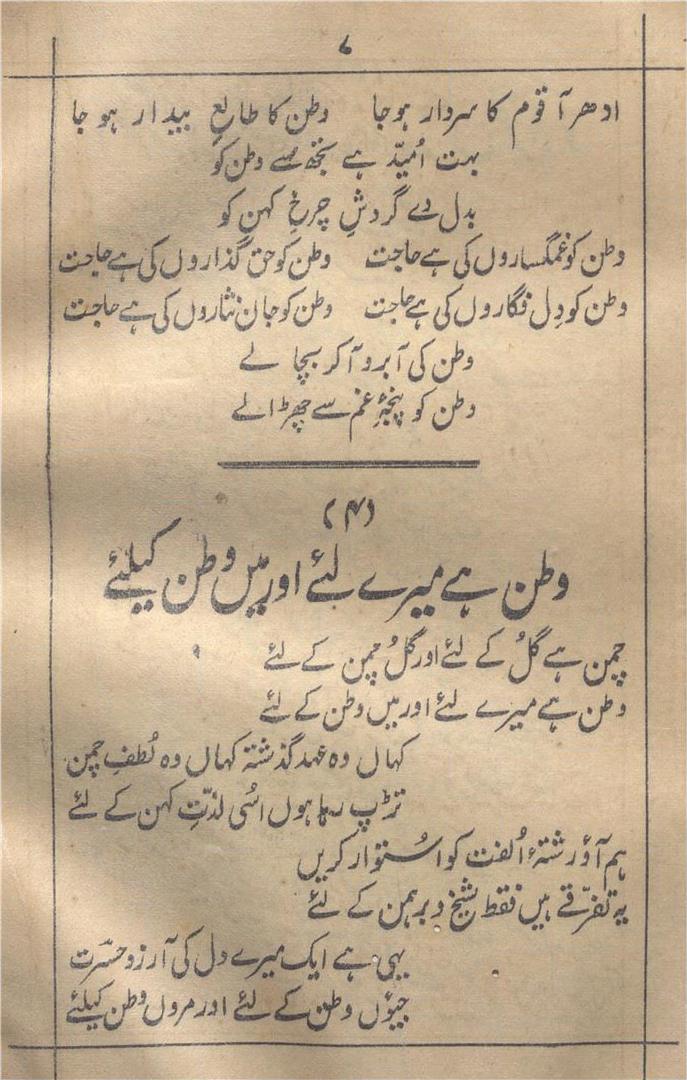 ۷
ادھر آ قوم کا سردار ہوجا وطن کا طالعِ بیدار ہوجا
بہت اُمیّد ہے تجھ سے وطن کو
بدل دے گردشِ چرخِ کہن کو
وطن کو غمگساروں کی ہے حاجت وطن کو حق گذاروں کی ہے حاجت
وطن کو دِل فگاروں کی ہے حاجت وطن کو جان نثاروں کی ہے حاجت
وطن کی آبرو آکر بچا لے
وطن کو پنجۂِ غم سے چھڑالے
(۴)
وطن ہے میرے لئے اور میں وطن کیلئے
چمن ہے گلُ کے لئے اور گلُ چمن کے لئے
وطن ہے میرے لئے اور میں وطن کے لئے
کہاں وہ عہد گذشتہ کہاں وہ لُطفِ چمن
تڑپ رہا ہوں اسُی لذّتِ کہن کے لئے
ہم آؤ رشتۂ اُلفت کو اسُتوار کریں
یہ تفرّقے ہیں فقط شیخ و برہمن کے لئے
یہی ہے ایک میرے دل کی آرزو حسؔرت
جیؤں وطن کے لئے اور مروں وطن کیلئے